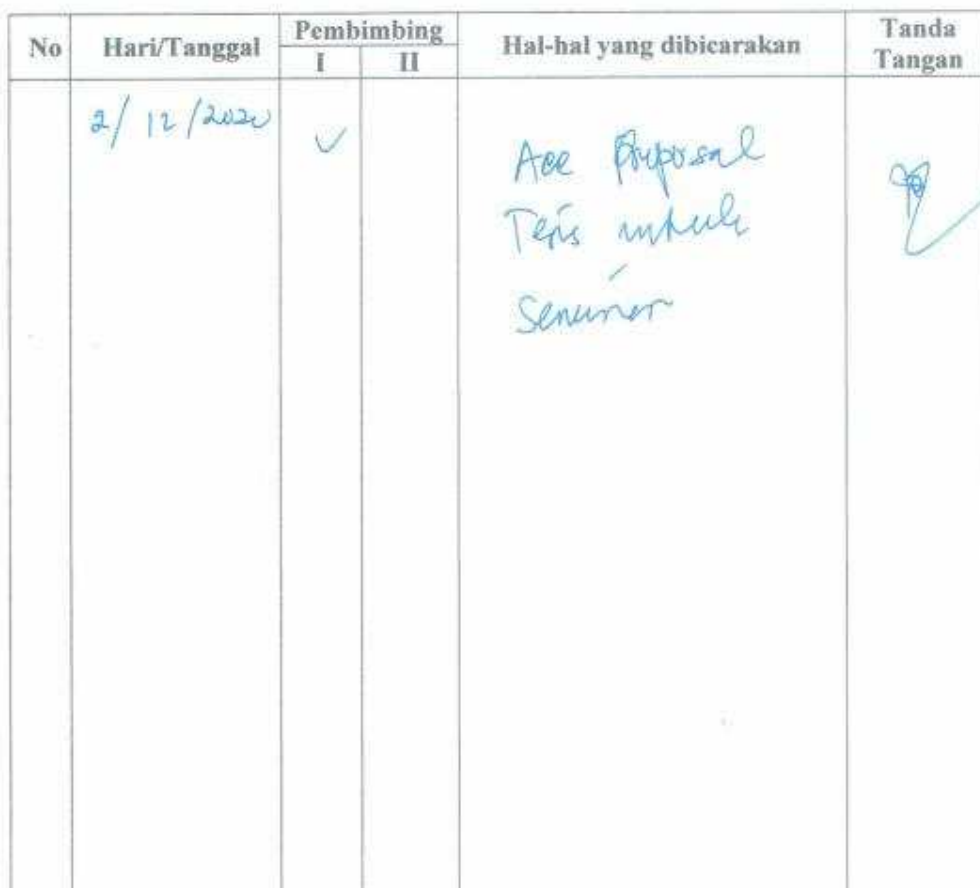 No Hari/Tanggal Pembimbing Hal-hal yang dibicarakan Tanda Tangan
I II
2/12/2020
Acc Proposal
Tesis untuk
Seminar